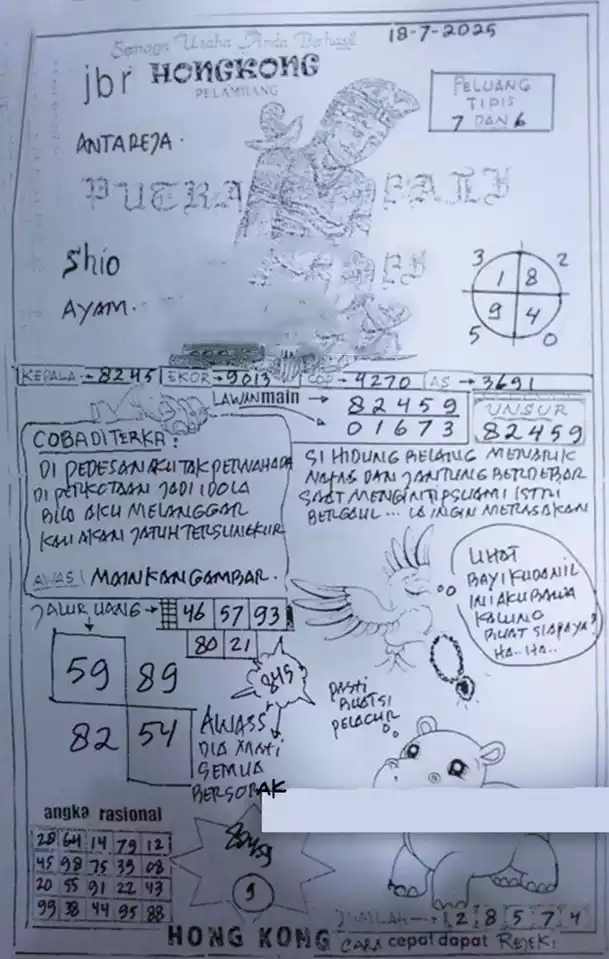 Semoga Usaha Anda Berhasil
18-7-2025
jbr HONGKONG
PELAMBANG
PELUANG
TIPIS
7 DAN 6
ANTAREJA.
PUTRA BALI
Shio
AYAM.
3 2
1 8
9 4
5 0
KEPALA → 8245 EKOR → 9013 COP → 4270 AS → 3691
LAWANmain → 82459
01673
UNSUR
82459
COBA DITERKA:
DI PEDESAN AKU TAK PERNAH ADA
DI PERKOTAAN JADI IDOLA
BILA AKU MELANGGAR
KAU AKAN JATUH TERSUNGKUR
AWAS! MAINKAN GAMBAR.
SI HIDUNG BELANG MENARIK
NAFAS DAN JANTUNG BERDEBAR
SAAT MENGINTIP SUAMI ISTRI
BERGAUL... IA INGIN MERASAKAN
LIHAT
BAYI KUDANIL
INI AKU BAWA
KALUNG
BUAT SIAPA YA?
HA.. HA..
JALUR UANG → 46 57 93
80 21
59 89
82 54
845
AWASS
DIA XANTI
SEMUA
BERSORAK
PASTI
BUAT SI
PELACUR
angka rasional
28 64 14 79 12
45 98 75 39 08
20 55 91 22 43
99 38 44 95 88
82459
9
JUMLAH → 1 2 8 5 7 4
HONG KONG CARA cepat dapat REJEKI